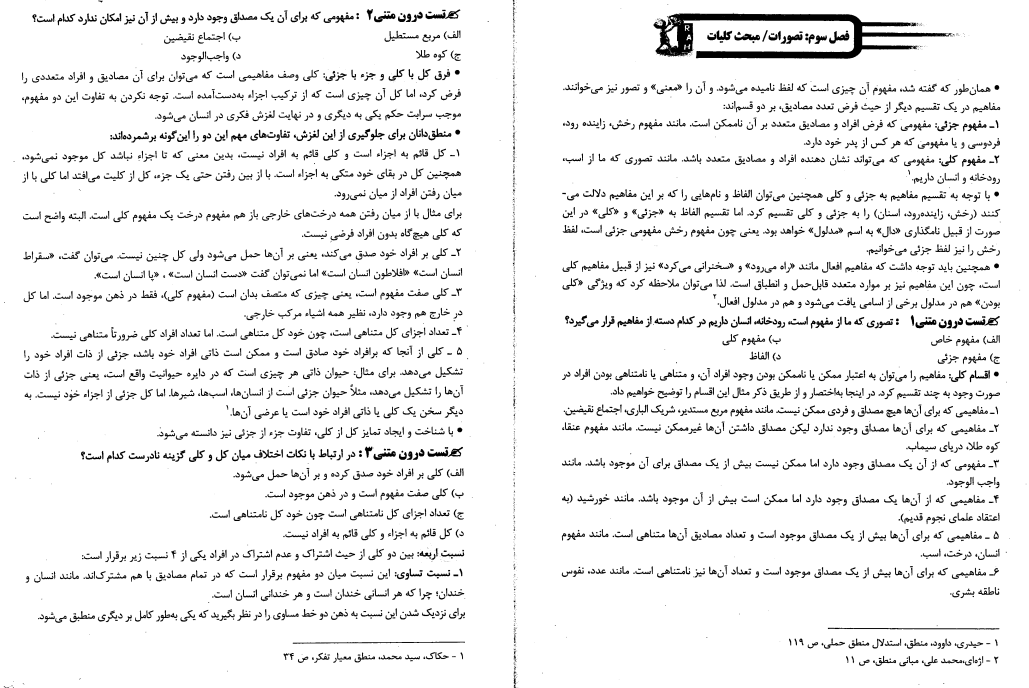 فصل سوم: تصورات/ مبحث کلیات
● همان‌طور که گفته شد، مفهوم آن چیزی است که لفظ نامیده می‌شود. و آن را «معنی» و تصور نیز می‌خوانند.
مفاهیم در یک تقسیم دیگر از حیث فرض تعدد مصادیق، بر دو قسم‌اند:
۱ـ مفهوم جزئی: مفهومی که فرض افراد و مصادیق متعدد بر آن ناممکن است. مانند مفهوم رخش، زاینده رود،
فردوسی و یا مفهومی که هر کس از پدر خود دارد.
۲ـ مفهوم کلی: مفهومی که می‌تواند نشان دهنده افراد و مصادیق متعدد باشد. مانند تصوری که ما از اسب،
رودخانه و انسان داریم.۱
● با توجه به تقسیم مفاهیم به جزئی و کلی همچنین می‌توان الفاظ و نام‌هایی را که بر این مفاهیم دلالت می-
کنند (رخش، زاینده‌رود، اسنان) را به جزئی و کلی تقسیم کرد. اما تقسیم الفاظ به «جزئی» و «کلی» در این
صورت از قبیل نامگذاری «دال» به اسم «مدلول» خواهد بود. یعنی چون مفهوم رخش مفهومی جزئی است، لفظ
رخش را نیز لفظ جزئی می‌خوانیم.
● همچنین باید توجه داشت که مفاهیم افعال مانند «راه می‌رود» و «سخنرانی می‌کرد» نیز از قبیل مفاهیم کلی
است، چون این مفاهیم نیز بر موارد متعدد قابل‌حمل و انطباق است. لذا می‌توان ملاحظه کرد که ویژگی «کلی
بودن» هم در مدلول برخی از اسامی یافت می‌شود و هم در مدلول افعال.۲
تست درون متنی۱ : تصوری که ما از مفهوم است، رودخانه، انسان داریم در کدام دسته از مفاهیم قرار می‌گیرد؟
الف) مفهوم خاص ب) مفهوم کلی
ج) مفهوم جزئی د) الفاظ
● اقسام کلی: مفاهیم را می‌توان به اعتبار ممکن یا ناممکن بودن وجود افراد آن، و متناهی یا نامتناهی بودن افراد در
صورت وجود به چند تقسیم کرد. در اینجا به‌اختصار و از طریق ذکر مثال این اقسام را توضیح خواهیم داد.
۱ـ مفاهیمی که برای آن‌ها هیچ مصداق و فردی ممکن نیست. مانند مفهوم مربع مستدیر، شریک الباری، اجتماع نقیضین.
۲ـ مفاهیمی که برای آن‌ها مصداق وجود ندارد لیکن مصداق داشتن آن‌ها غیرممکن نیست. مانند مفهوم عنقا،
کوه طلا، دریای سیماب.
۳ـ مفهومی که از آن یک مصداق وجود دارد اما ممکن نیست بیش از یک مصداق برای آن موجود باشد. مانند
واجب الوجود.
۴ـ مفاهیمی که از آن‌ها یک مصداق وجود دارد اما ممکن است بیش از آن موجود باشد. مانند خورشید (به
اعتقاد علمای نجوم قدیم).
۵ ـ مفاهیمی که برای آن‌ها بیش از یک مصداق موجود است و تعداد مصادیق آن‌ها متناهی است. مانند مفهوم
انسان، درخت، اسب.
۶ـ مفاهیمی که برای آن‌ها بیش از یک مصداق موجود است و تعداد آن‌ها نیز نامتناهی است. مانند عدد، نفوس
ناطقه بشری.
۱ - حیدری، داوود، منطق، استدلال منطق حملی، ص ۱۱۹
۲ - اژه‌ای،محمد علی، مبانی منطق، ص ۱۱
تست درون متنی۲ : مفهومی که برای آن یک مصداق وجود دارد و بیش از آن نیز امکان ندارد کدام است؟
الف) مربع مستطیل ب) اجتماع نقیضین
ج) کوه طلا د) واجب‌الوجود
● فرق کل با کلی و جزء با جزئی: کلی وصف مفاهیمی است که می‌توان برای آن مصادیق و افراد متعددی را
فرض کرد، اما کل آن چیزی است که از ترکیب اجزاء به‌دست‌آمده است. توجه نکردن به تفاوت این دو مفهوم،
موجب سرایت حکم یکی به دیگری و در نهایت لغزش فکری در انسان می‌شود.
● منطق‌دانان برای جلوگیری از این لغزش، تفاوت‌های مهم این دو را این‌گونه برشمرده‌اند:
۱ـ کل قائم به اجزاء است و کلی قائم به افراد نیست، بدین معنی که تا اجزاء نباشد کل موجود نمی‌شود،
همچنین کل در بقای خود متکی به اجزاء است. با از بین رفتن حتی یک جزء، کل از کلیت می‌افتد اما کلی با از
میان رفتن افراد از میان نمی‌رود.
برای مثال با از میان رفتن همه درخت‌های خارجی باز هم مفهوم درخت یک مفهوم کلی است. البته واضح است
که کلی هیچ‌گاه بدون افراد فرضی نیست.
۲ـ کلی بر افراد خود صدق می‌کند، یعنی بر آن‌ها حمل می‌شود ولی کل چنین نیست. می‌توان گفت، «سقراط
انسان است» «افلاطون انسان است» اما نمی‌توان گفت «دست انسان است» ، «پا انسان است».
۳ـ کلی صفت مفهوم است، یعنی چیزی که متصف بدان است (مفهوم کلی)، فقط در ذهن موجود است. اما کل
در خارج هم وجود دارد، نظیر همه اشیاء مرکب خارجی.
۴ـ تعداد اجزای کل متناهی است، چون خود کل متناهی است. اما تعداد افراد کلی ضرورتاً متناهی نیست.
۵ ـ کلی از آنجا که برافراد خود صادق است و ممکن است ذاتی افراد خود باشد، جزئی از ذات افراد خود را
تشکیل می‌دهد. برای مثال: حیوان ذاتی هر چیزی است که در دایره حیوانیت واقع است، یعنی جزئی از ذات
آن‌ها را تشکیل می‌دهد، مثلاً حیوان جزئی است از انسان‌ها، اسب‌ها، شیرها. اما کل جزئی از اجزاء خود نیست. به
دیگر سخن یک کل یا ذاتی افراد خود است یا عرضی آن‌ها.۱
● با شناخت و ایجاد تمایز کل از کلی، تفاوت جزء از جزئی نیز دانسته می‌شود.
تست درون متنی۳ : در ارتباط با نکات اختلاف میان کل و کلی گزینه نادرست کدام است؟
الف) کلی بر افراد خود صدق کرده و بر آن‌ها حمل می‌شود.
ب) کلی صفت مفهوم است و در ذهن موجود است.
ج) تعداد اجزای کل نامتناهی است چون خود کل نامتناهی است.
د) کل قائم به اجزاء و کلی قائم به افراد نیست.
نسبت اربعه: بین دو کلی از حیث اشتراک و عدم اشتراک در افراد یکی از ۴ نسبت زیر برقرار است:
۱ـ نسبت تساوی: این نسبت میان دو مفهوم برقرار است که در تمام مصادیق با هم مشترک‌اند. مانند انسان و
خندان؛ چرا که هر انسانی خندان است و هر خندانی انسان است.
برای نزدیک شدن این نسبت به ذهن دو خط مساوی را در نظر بگیرید که یکی به‌طور کامل بر دیگری منطبق می‌شود.
۱ - حکاک، سید محمد، منطق معیار تفکر، ص ۳۴